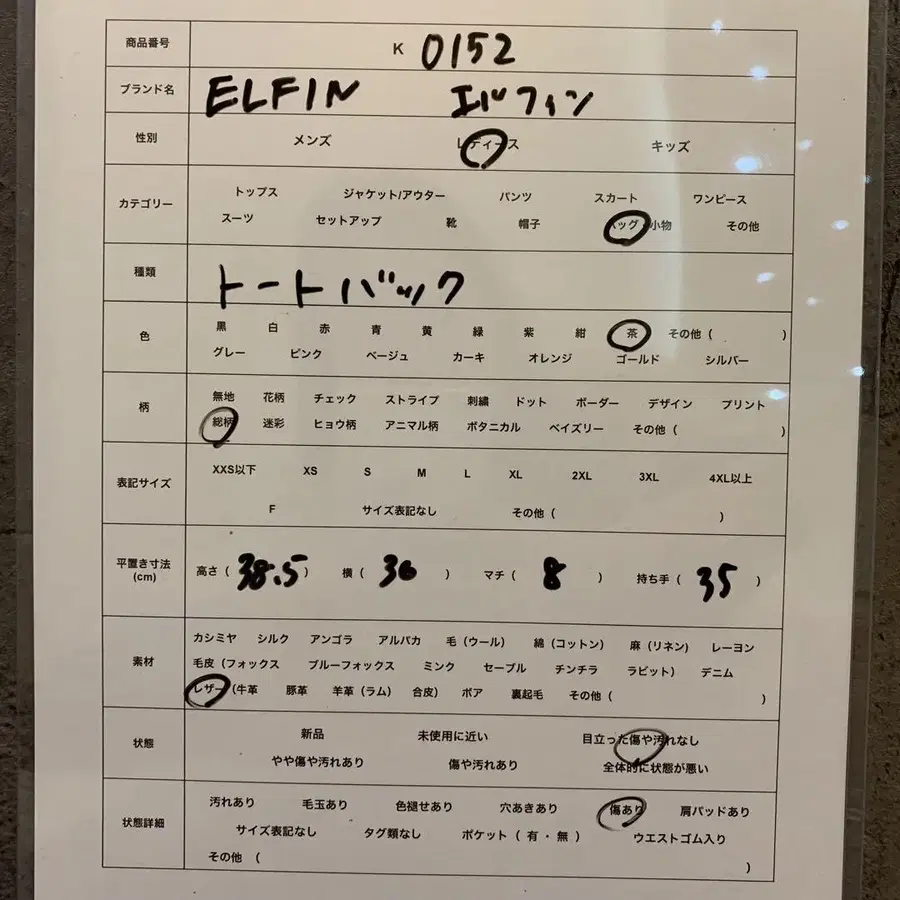 商品番号 K 0152
ブランド名 ELFIN エルフィン
性別 メンズ レディース キッズ
カテゴリー
トップス ジャケット/アウター パンツ スカート ワンピース
スーツ セットアップ 靴 帽子 バッグ・小物 その他
種類 トートバック
色
黒 白 赤 青 黄 緑 紫 紺 茶 その他（ ）
グレー ピンク ベージュ カーキ オレンジ ゴールド シルバー
柄
無地 花柄 チェック ストライプ 刺繍 ドット ボーダー デザイン プリント
総柄 迷彩 ヒョウ柄 アニマル柄 ボタニカル ペイズリー その他（ ）
表記サイズ
XXS以下 XS S M L XL 2XL 3XL 4XL以上
F サイズ表記なし その他（ ）
平置き寸法
(cm)
高さ（ 38.5 ） 横（ 36 ） マチ（ 8 ） 持ち手（ 35 ）
素材
カシミヤ シルク アンゴラ アルパカ 毛（ウール） 綿（コットン） 麻（リネン） レーヨン
毛皮（フォックス ブルーフォックス ミンク セーブル チンチラ ラビット） デニム
レザー（牛革 豚革 羊革（ラム） 合皮） ボア 裏起毛 その他（ ）
状態
新品 未使用に近い 目立った傷や汚れなし
やや傷や汚れあり 傷や汚れあり 全体的に状態が悪い
状態詳細
汚れあり 毛玉あり 色褪せあり 穴あきあり 傷あり 肩パッドあり
サイズ表記なし タグ類なし ポケット（ 有・無 ） ウエストゴム入り
その他 （ ）